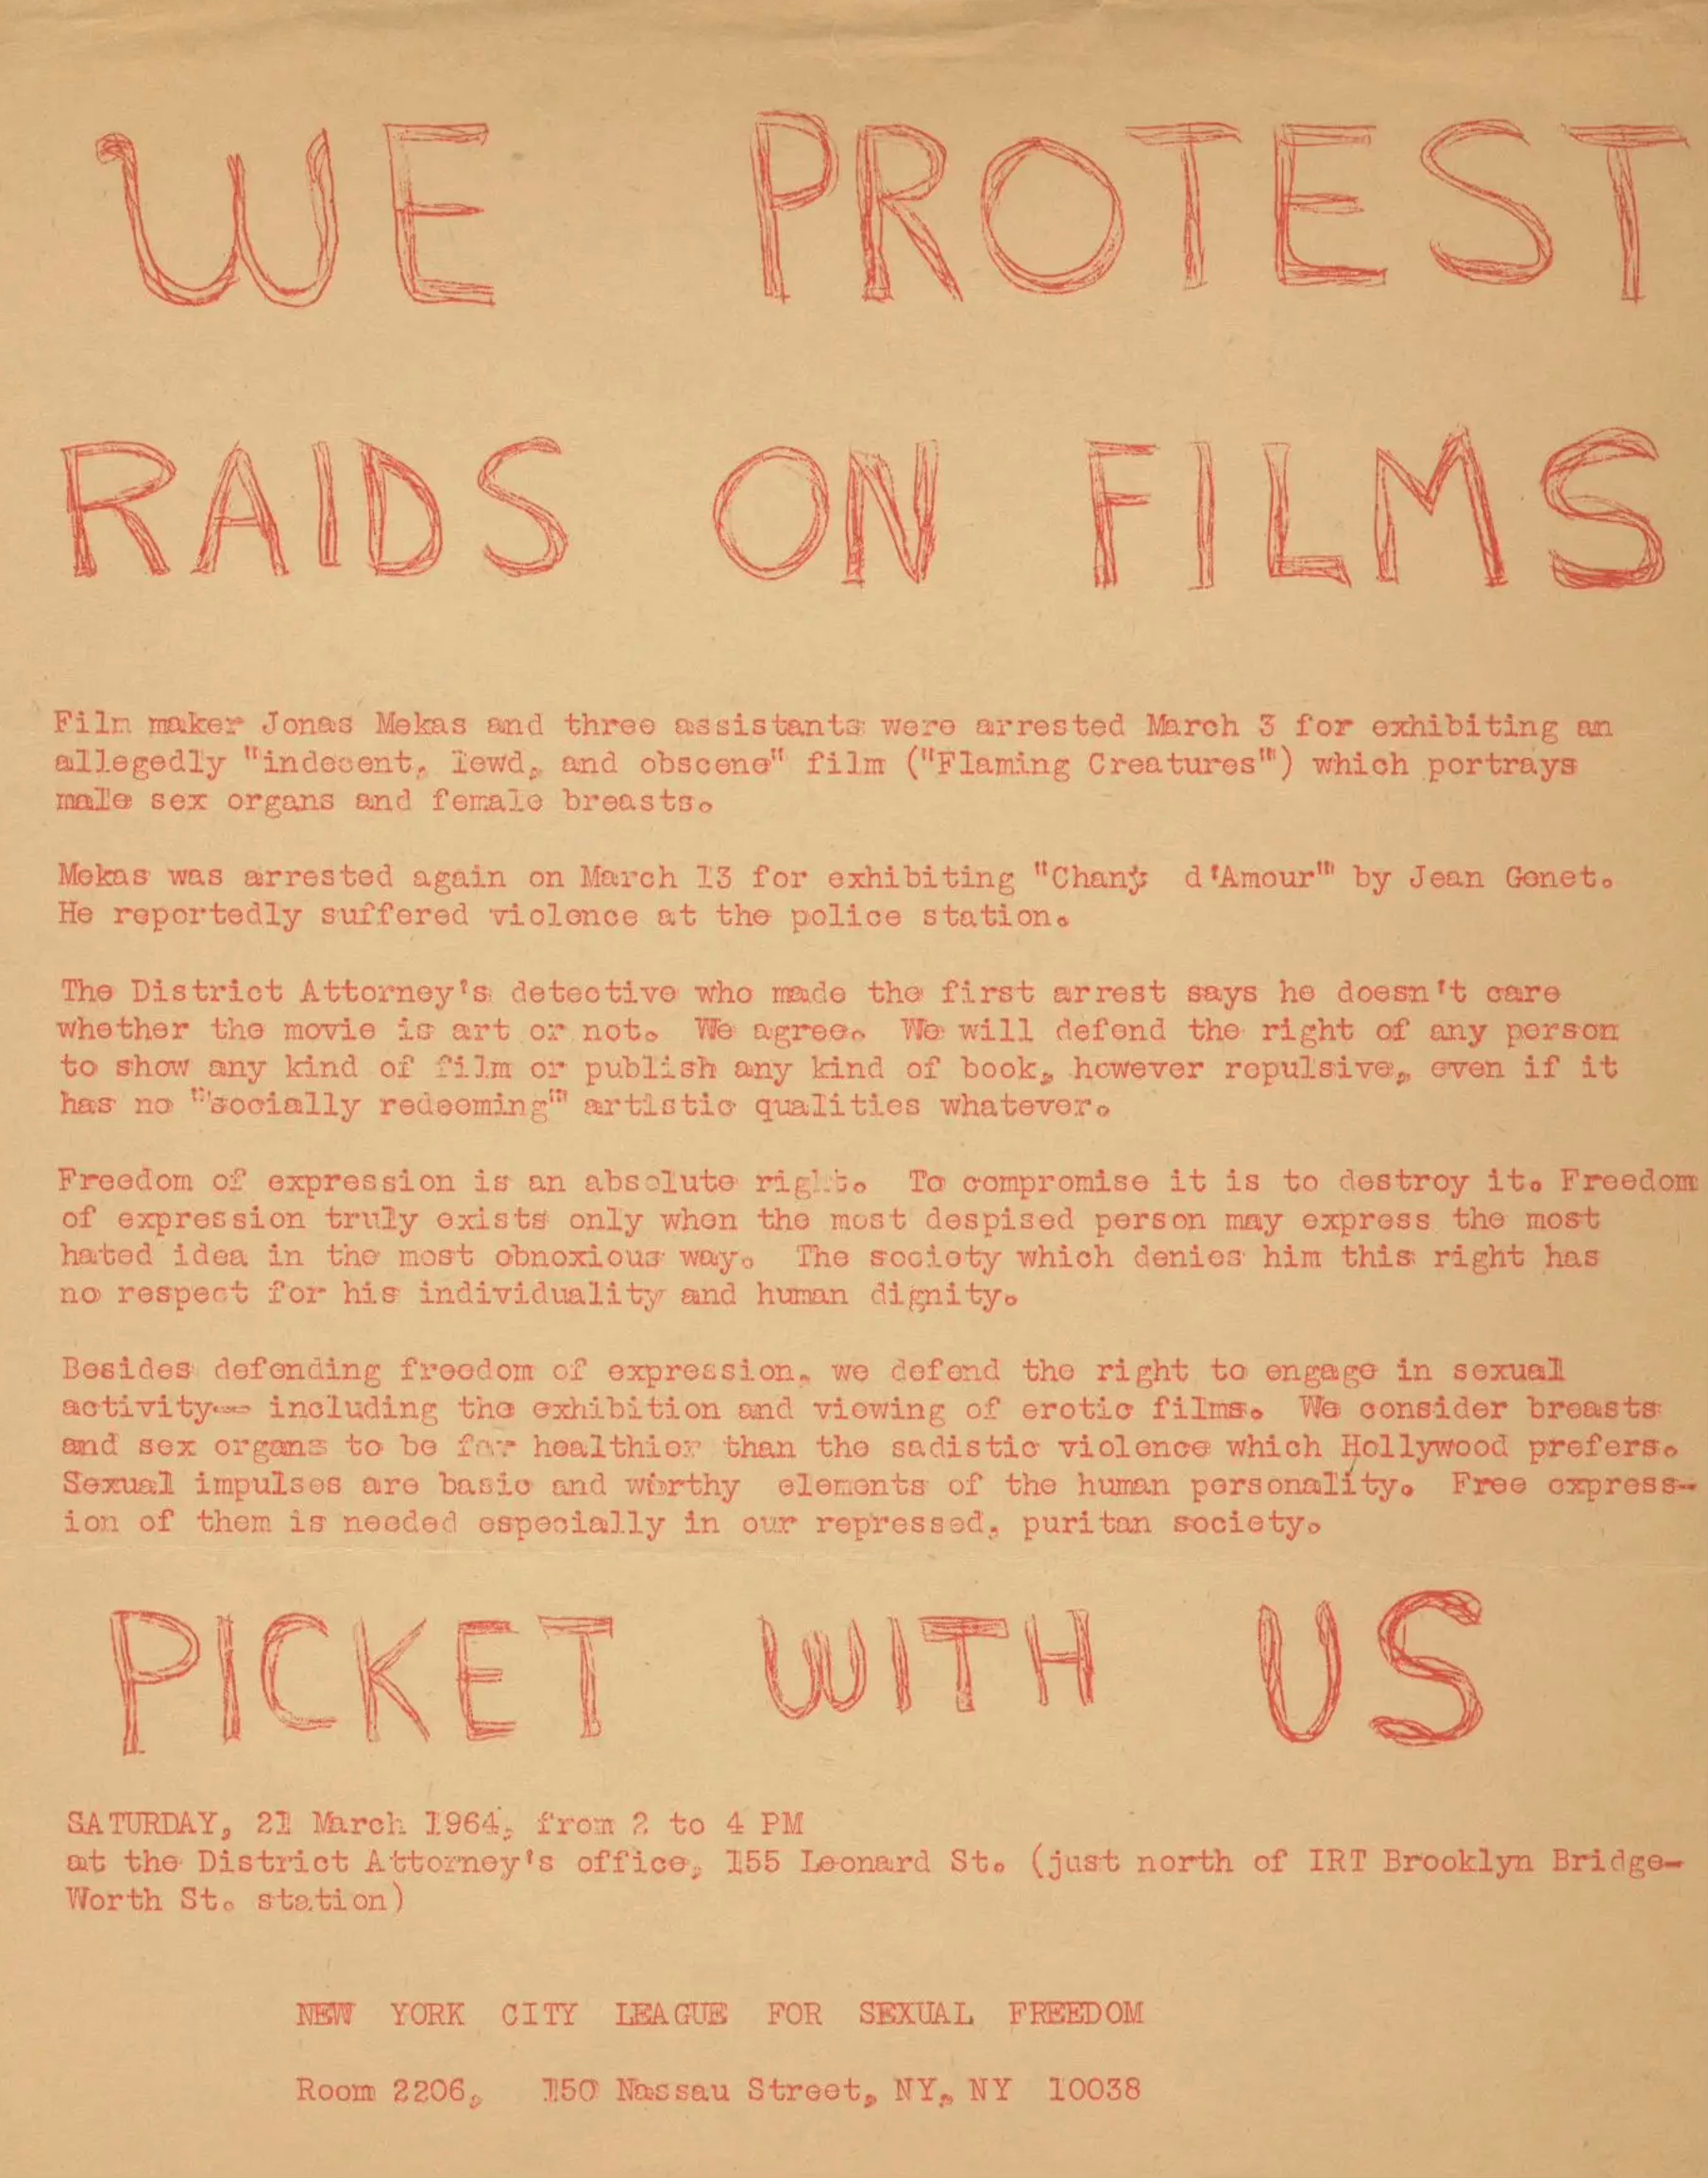 WE PROTEST
RAIDS ON FILMS
Film maker Jonas Mekas and three assistants were arrested March 3 for exhibiting an
allegedly "indecent, lewd, and obscene" film ("Flaming Creatures") which portrays
male sex organs and female breasts.
Mekas was arrested again on March 13 for exhibiting "Chant d'Amour" by Jean Genet.
He reportedly suffered violence at the police station.
The District Attorney's detective who made the first arrest says he doesn't care
whether the movie is art or not. We agree. We will defend the right of any person
to show any kind of film or publish any kind of book, however repulsive, even if it
has no "socially redeeming" artistic qualities whatever.
Freedom of expression is an absolute right. To compromise it is to destroy it. Freedom
of expression truly exists only when the most despised person may express the most
hated idea in the most obnoxious way. The society which denies him this right has
no respect for his individuality and human dignity.
Besides defending freedom of expression, we defend the right to engage in sexual
activity-- including the exhibition and viewing of erotic films. We consider breasts
and sex organs to be far healthier than the sadistic violence which Hollywood prefers.
Sexual impulses are basic and worthy elements of the human personality. Free express-
ion of them is needed especially in our repressed, puritan society.
PICKET WITH US
SATURDAY, 21 March 1964, from 2 to 4 PM
at the District Attorney's office, 155 Leonard St. (just north of IRT Brooklyn Bridge-
Worth St. station)
NEW YORK CITY LEAGUE FOR SEXUAL FREEDOM
Room 2206, 150 Nassau Street, NY, NY 10038